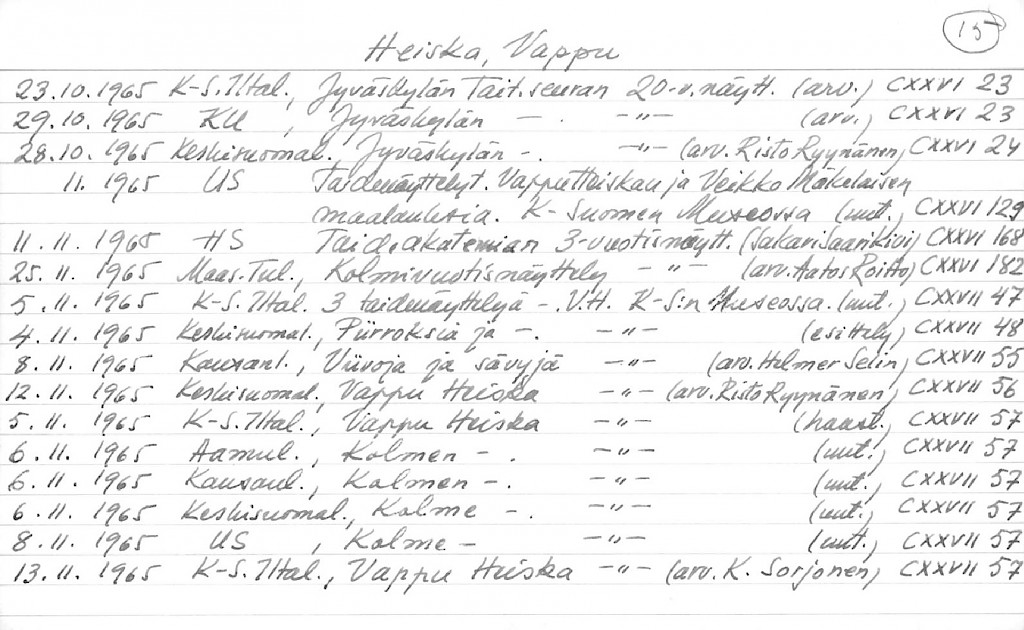 15
Heiska, Vappu
23.10.1965 K-S.Iltal., Jyväskylän Tait.seuran 20-v.näytt. (arv.) CXXVI 23
29.10.1965 KU , Jyväskylän — . —"— (arv.) CXXVI 23
28.10.1965 Keskisuomal., Jyväskylän —. —"— (arv. Risto Ryynänen) CXXVI 24
11.1965 US Taidenäyttelyt. Vappu Heiskan ja Veikko Mäkeläisen
maalauksia. K-Suomen Museossa (uut.) CXXVI 129
11.11.1965 HS Taideakatemian 3-vuotisnäytt. (Sakari Saarikivi) CXXVI 168
25.11.1965 Maas.Tul., Kolmivuotisnäyttely —"— (arv. Aatos Roitto) CXXVI 182
5.11.1965 K-S.Iltal. 3 taidenäyttelyä —. V.H. K-S:n Museossa. (uut.) CXXVII 47
4.11.1965 Keskisuomal., Piirroksia ja —. —"— (esittely) CXXVII 48
8.11.1965 Kansanl., Viivoja ja sävyjä —"— (arv. Helmer Selin) CXXVII 55
12.11.1965 Keskisuomal., Vappu Heiska —"— (arv. Risto Ryynänen) CXXVII 56
5.11.1965 K-S.Iltal., Vappu Heiska —"— (haast.) CXXVII 57
6.11.1965 Aamul., Kolmen —. —"— (uut.) CXXVII 57
6.11.1965 Kansanl., Kolmen —. —"— (uut.) CXXVII 57
6.11.1965 Keskisuomal., Kolme —. —"— (uut.) CXXVII 57
8.11.1965 US , Kolme — —"— (uut.) CXXVII 57
13.11.1965 K-S.Iltal., Vappu Heiska —"— (arv. K. Sorjonen) CXXVII 57